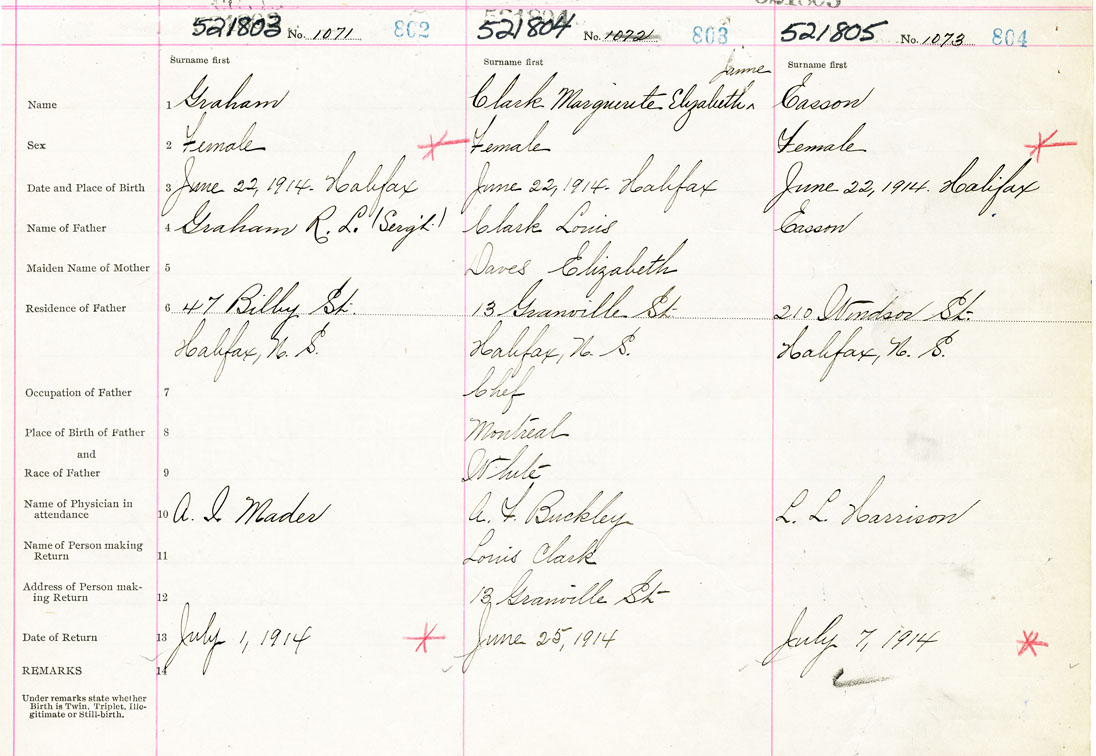 521803 No. 1071 802 521804 No. 1072 803 521805 No. 1073 804
Surname first Surname first Surname first
Jamie
Name 1 Graham Clark Marguerite Elizabeth ^ Easson
Sex 2 Female Female Female
Date and Place of Birth 3 June 22, 1914. Halifax June 22, 1914. Halifax June 22, 1914. Halifax
Name of Father 4 Graham R. L. (Serg't.) Clark Louis Easson
Maiden Name of Mother 5 Daves Elizabeth
Residence of Father 6 47 Bilby St. 13 Granville St. 210 Windsor St.
Halifax, N. S. Halifax, N. S. Halifax, N. S.
Occupation of Father 7 Chef
Place of Birth of Father 8 Montreal
and
Race of Father 9 White
Name of Physician in
attendance 10 A. I. Mader A. F. Buckley L. L. Harrison
Name of Person making
Return 11 Louis Clark
Address of Person mak-
ing Return 12 13 Granville St.
Date of Return 13 July 1, 1914 June 25, 1914 July 7, 1914
REMARKS 14
Under remarks state whether
Birth is Twin, Triplet, Ille-
gitimate or Still-birth.